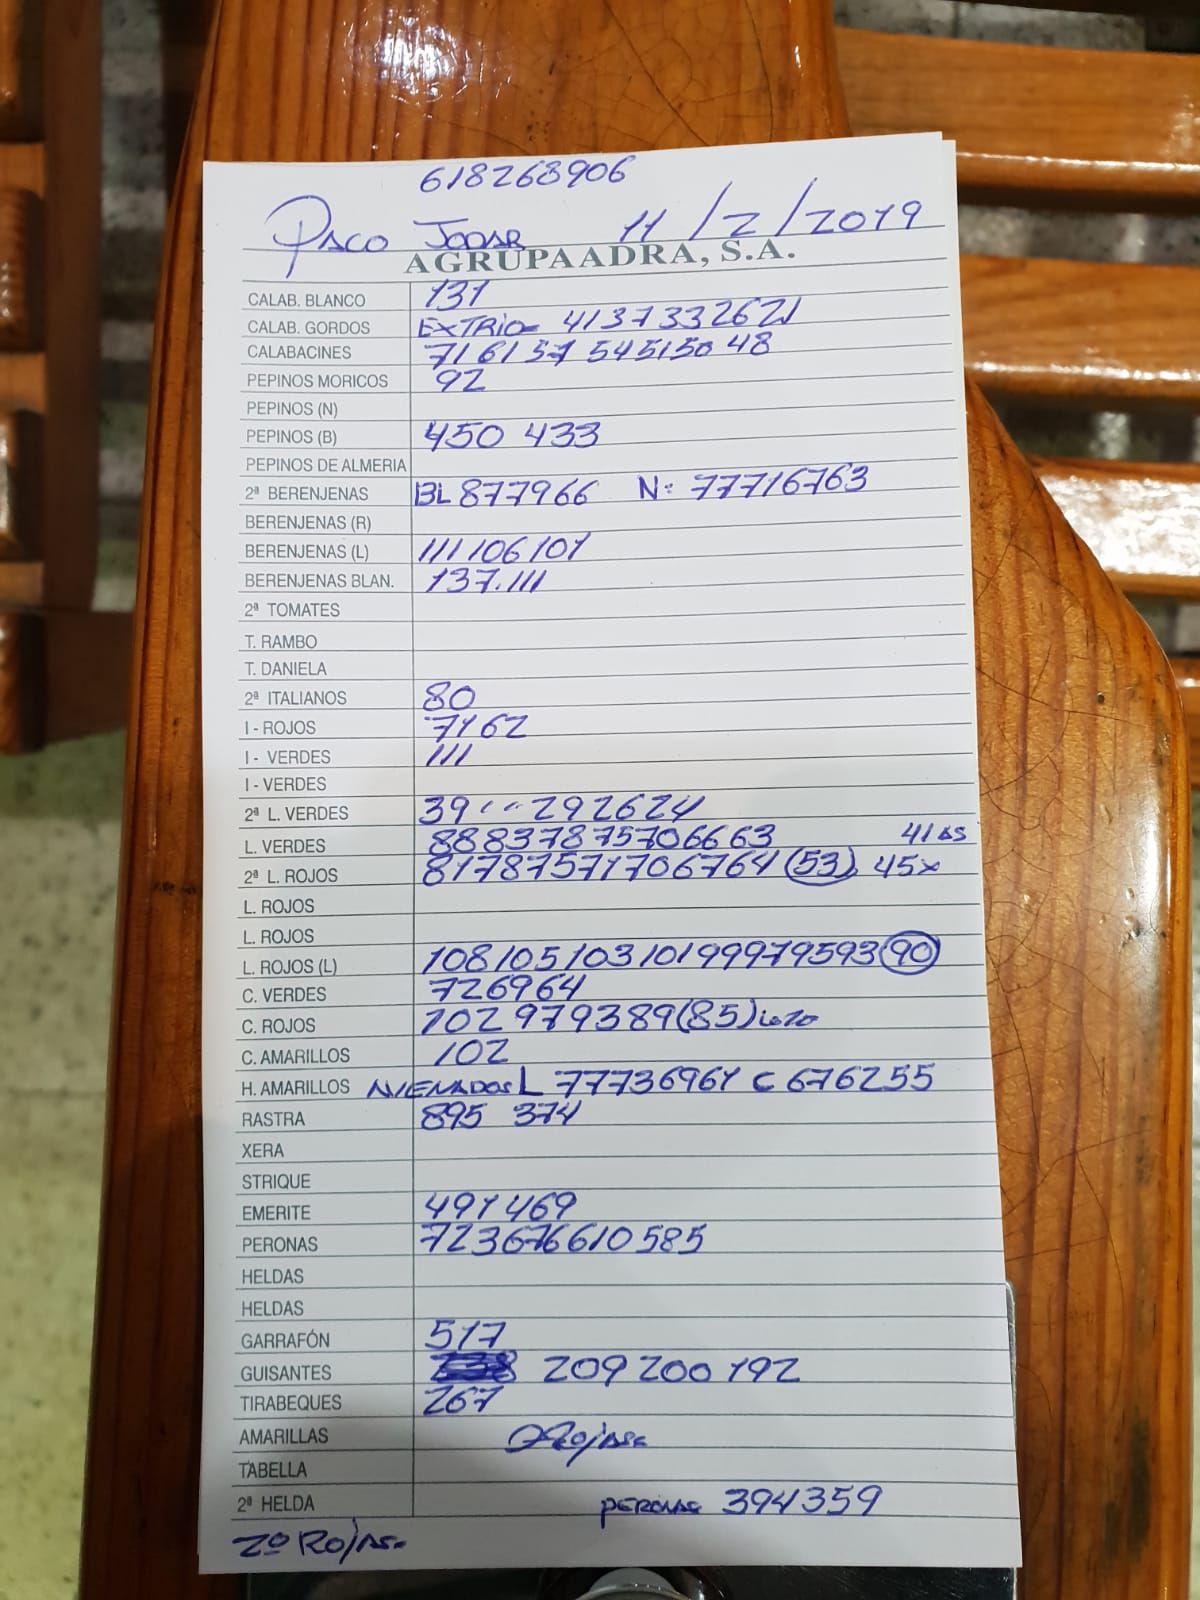 618268906
Paco Jodar 11/2/2019
AGRUPAADRA, S.A.
CALAB. BLANCO 131
CALAB. GORDOS EXTRIO 41 37 33 26 21
CALABACINES 71 61 57 54 51 50 48
PEPINOS MORICOS 92
PEPINOS (N)
PEPINOS (B) 450 433
PEPINOS DE ALMERIA
2ª BERENJENAS BL 87 79 66 N: 77 71 67 63
BERENJENAS (R)
BERENJENAS (L) 111 106 101
BERENJENAS BLAN. 137.111
2ª TOMATES
T. RAMBO
T. DANIELA
2ª ITALIANOS 80
I - ROJOS 71 62
I - VERDES 111
I - VERDES
2ª L. VERDES 39 29 26 24
L. VERDES 88 83 78 75 70 66 63 41
2ª L. ROJOS 81 78 75 71 70 67 64 (53) 45x
L. ROJOS
L. ROJOS
L. ROJOS (L) 108 105 103 101 99 97 95 93 90
C. VERDES 72 69 64
C. ROJOS 102 97 93 89 (85)
C. AMARILLOS 102
H. AMARILLOS L 77 73 69 61 C 67 62 55
RASTRA 895 374
XERA
STRIQUE
EMERITE 491 469
PERONAS 723 676 610 585
HELDAS
HELDAS
GARRAFÓN 517
GUISANTES 209 200 192
TIRABEQUES 267
AMARILLAS
TABELLA
2ª HELDA 394 359
2º Rojas